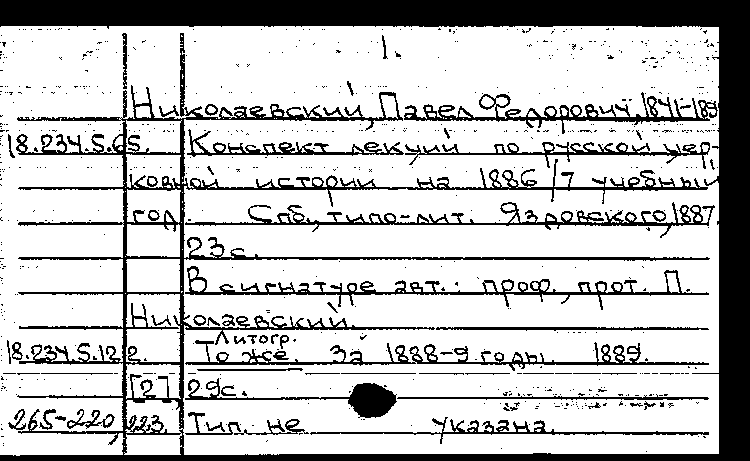 1.
Николаевский, Павел Федорович, 1841-189
18.234.5.65. Конспект лекций по русской цер-
ковной истории на 1886/7 учебный
год. Спб., типо-лит. Яздовского, 1887.
23 с.
В сигнатуре авт.: проф., прот. П.
Николаевский.
Литогр.
18.234.5.122. То же. За 1888-9 годы. 1889.
[2], 29с.
265-220, 223. Тип. не указана.